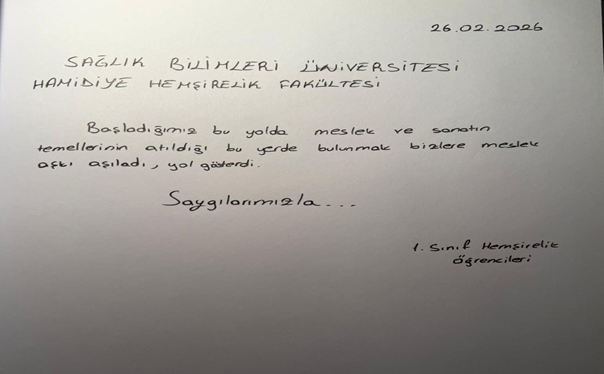 26.02.2026
SAĞLIK BİLİMLERİ ÜNİVERSİTESİ
HAMİDİYE HEMŞİRELİK FAKÜLTESİ
Başladığımız bu yolda meslek ve sanatın
temellerinin atıldığı bu yerde bulunmak bizlere meslek
aşkı aşıladı, yol gösterdi.
Saygılarımızla...
1. Sınıf Hemşirelik
Öğrencileri